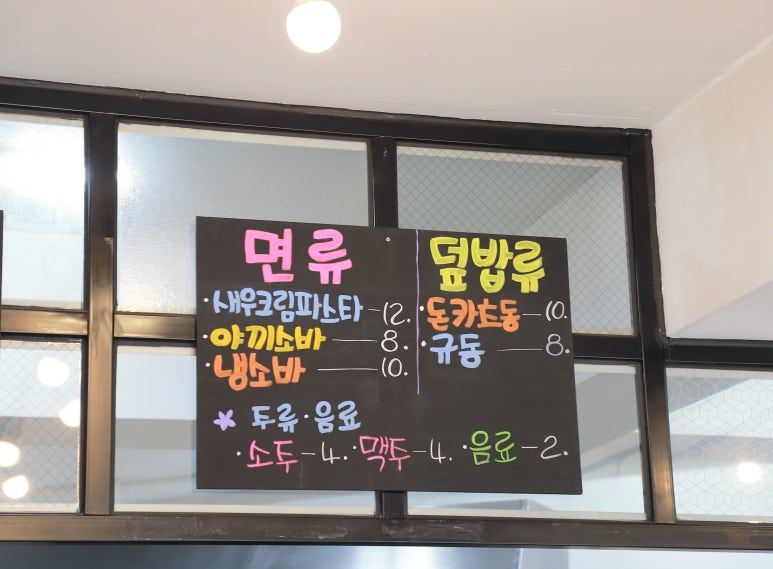 면류
·새우크림파스타 - 12.
·야끼소바 — 8.
·냉소바 — 10.
덮밥류
·돈카츠동 - 10.
·규동 — 8.
* 주류·음료
·소주 - 4. ·맥주 - 4. ·음료 - 2.